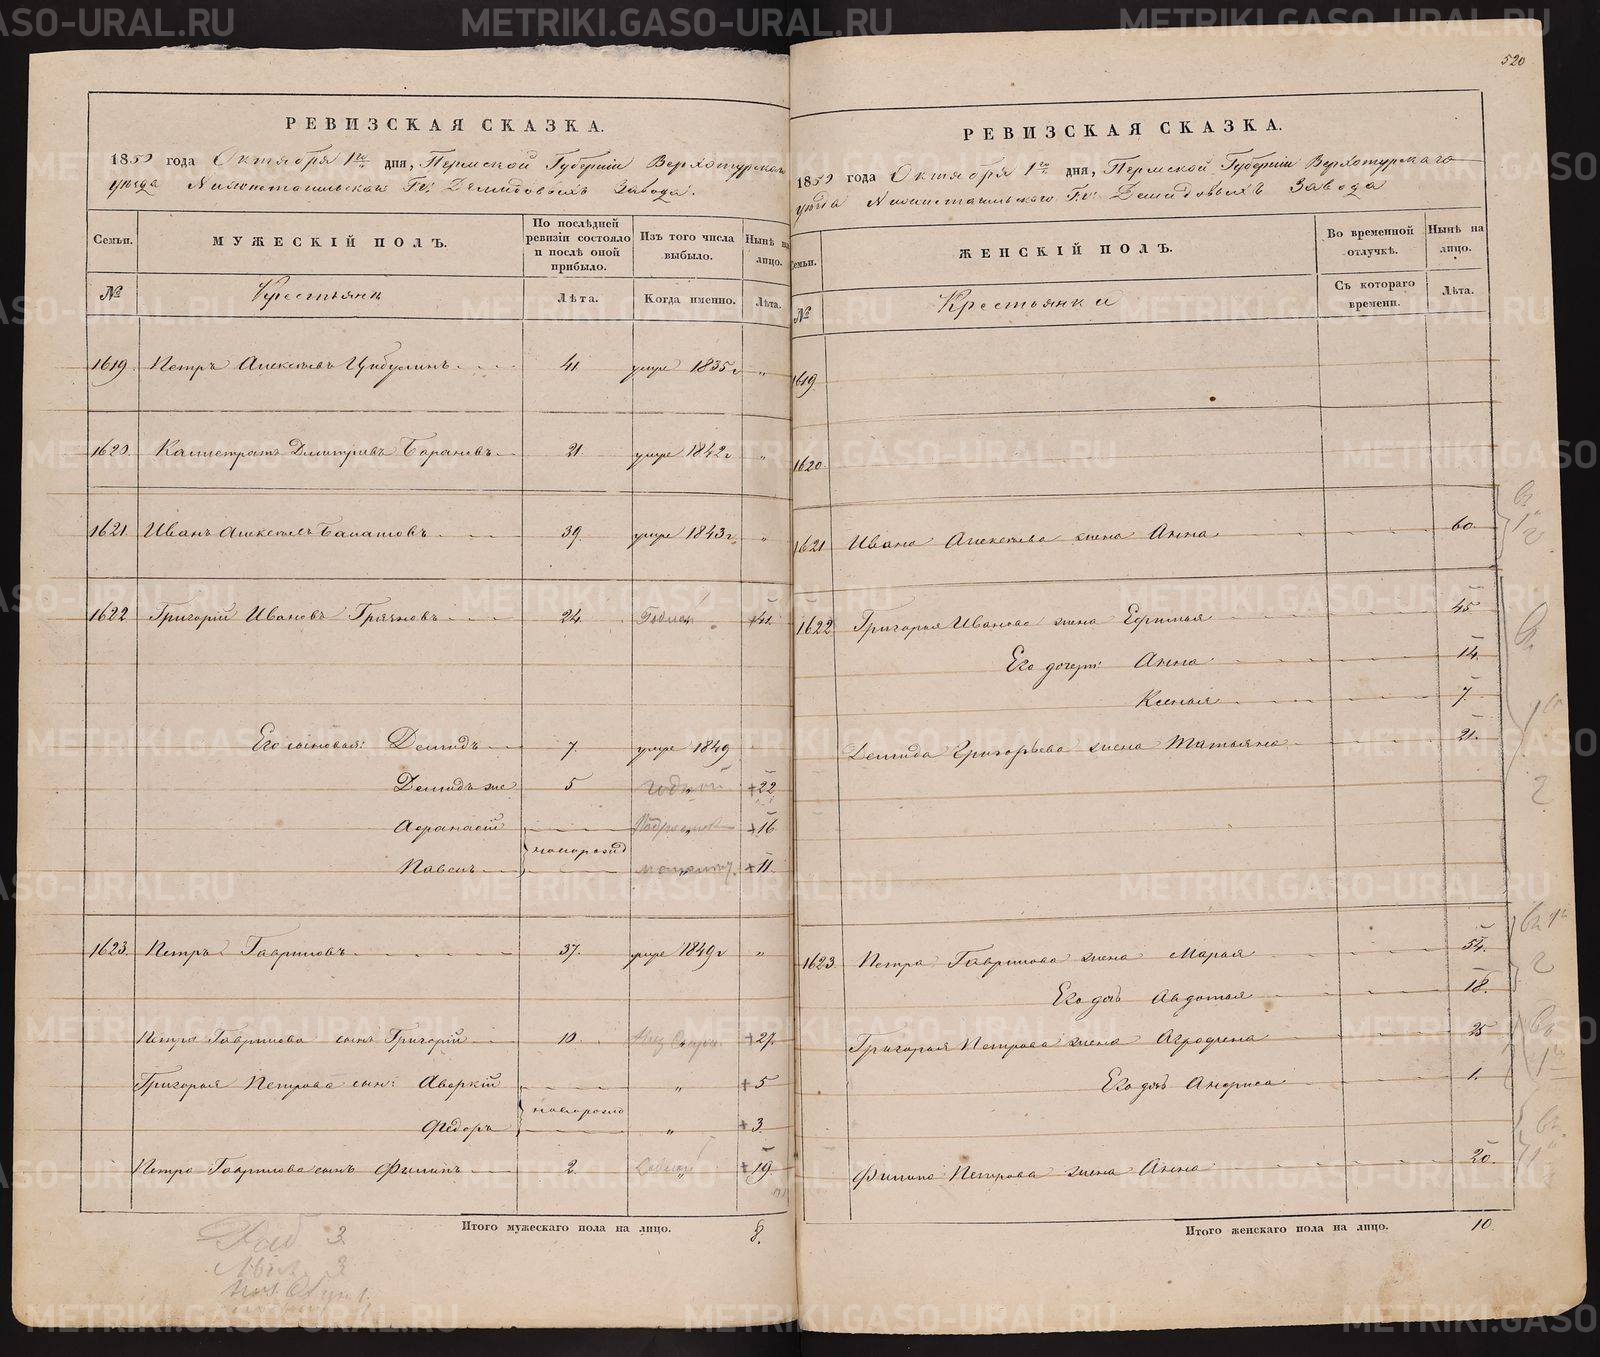 520
РЕВИЗСКАЯ СКАЗКА.
1850 года Октября 1го дня, Пермской Губернии Верхотурскаго
уѣзда Нижнетагильскаго Гг. Демидовыхъ Завода.
Семьи.
МУЖЕСКІЙ ПОЛЪ.
По послѣдней ревизіи состояло и послѣ оной прибыло.
Изъ того числа выбыло.
Нынѣ на лицо.
№
Крестьяне
Лѣта.
Когда именно.
Лѣта.
1619. Петръ Алексѣевъ 41 умре 1835 г „
1620. Калистратъ Дмитріевъ Барановъ 21 умре 1842 г „
1621. Иванъ Алексѣевъ Балашовъ 39. умре 1843 г. „
1622 Григорій Ивановъ Грязновъ 24. Годной 41
Его сыновья: Демидъ 7. умре 1849
Демидъ же 5 годной +22
Афанасій Подростокъ +16
новорожд
Павелъ +11.
1623. Петръ Гавриловъ 37. умре 1849 г „
Петра Гаврилова сынъ Григорій 10. +27.
Григорья Петрова сын: Аверкій „ +5
новорожд
Федоръ „ +3.
Петра Гаврилова сынъ Филипъ 2. Годной +19
Итого мужескаго пола на лицо. 8.
3
3
РЕВИЗСКАЯ СКАЗКА.
1850 года Октября 1го дня, Пермской Губерніи Верхотурскаго
уѣзда Нижнетагильскаго Гг. Демидовыхъ Завода
Семьи.
ЖЕНСКІЙ ПОЛЪ.
Во временной отлучкѣ.
Нынѣ на лицо.
№
Крестьянки
Съ котораго времени.
Лѣта.
1619.
1620
1621 Ивана Алексѣева жена Анна 60.
1622 Григорья Иванова жена Ефимья 45
Его дочери: Анна 14.
Ксенья 7.
Демида Григорьева жена Татьяна 21.
1623. Петра Гаврилова жена Марья 54.
Его дочь Авдотья 18.
Григорья Петрова жена Аграфена 25
Его дочь Анфиса 1.
Филипа Петрова жена Анна 20.
Итого женскаго пола на лицо. 10.
METRIKI.GASO-URAL.RU